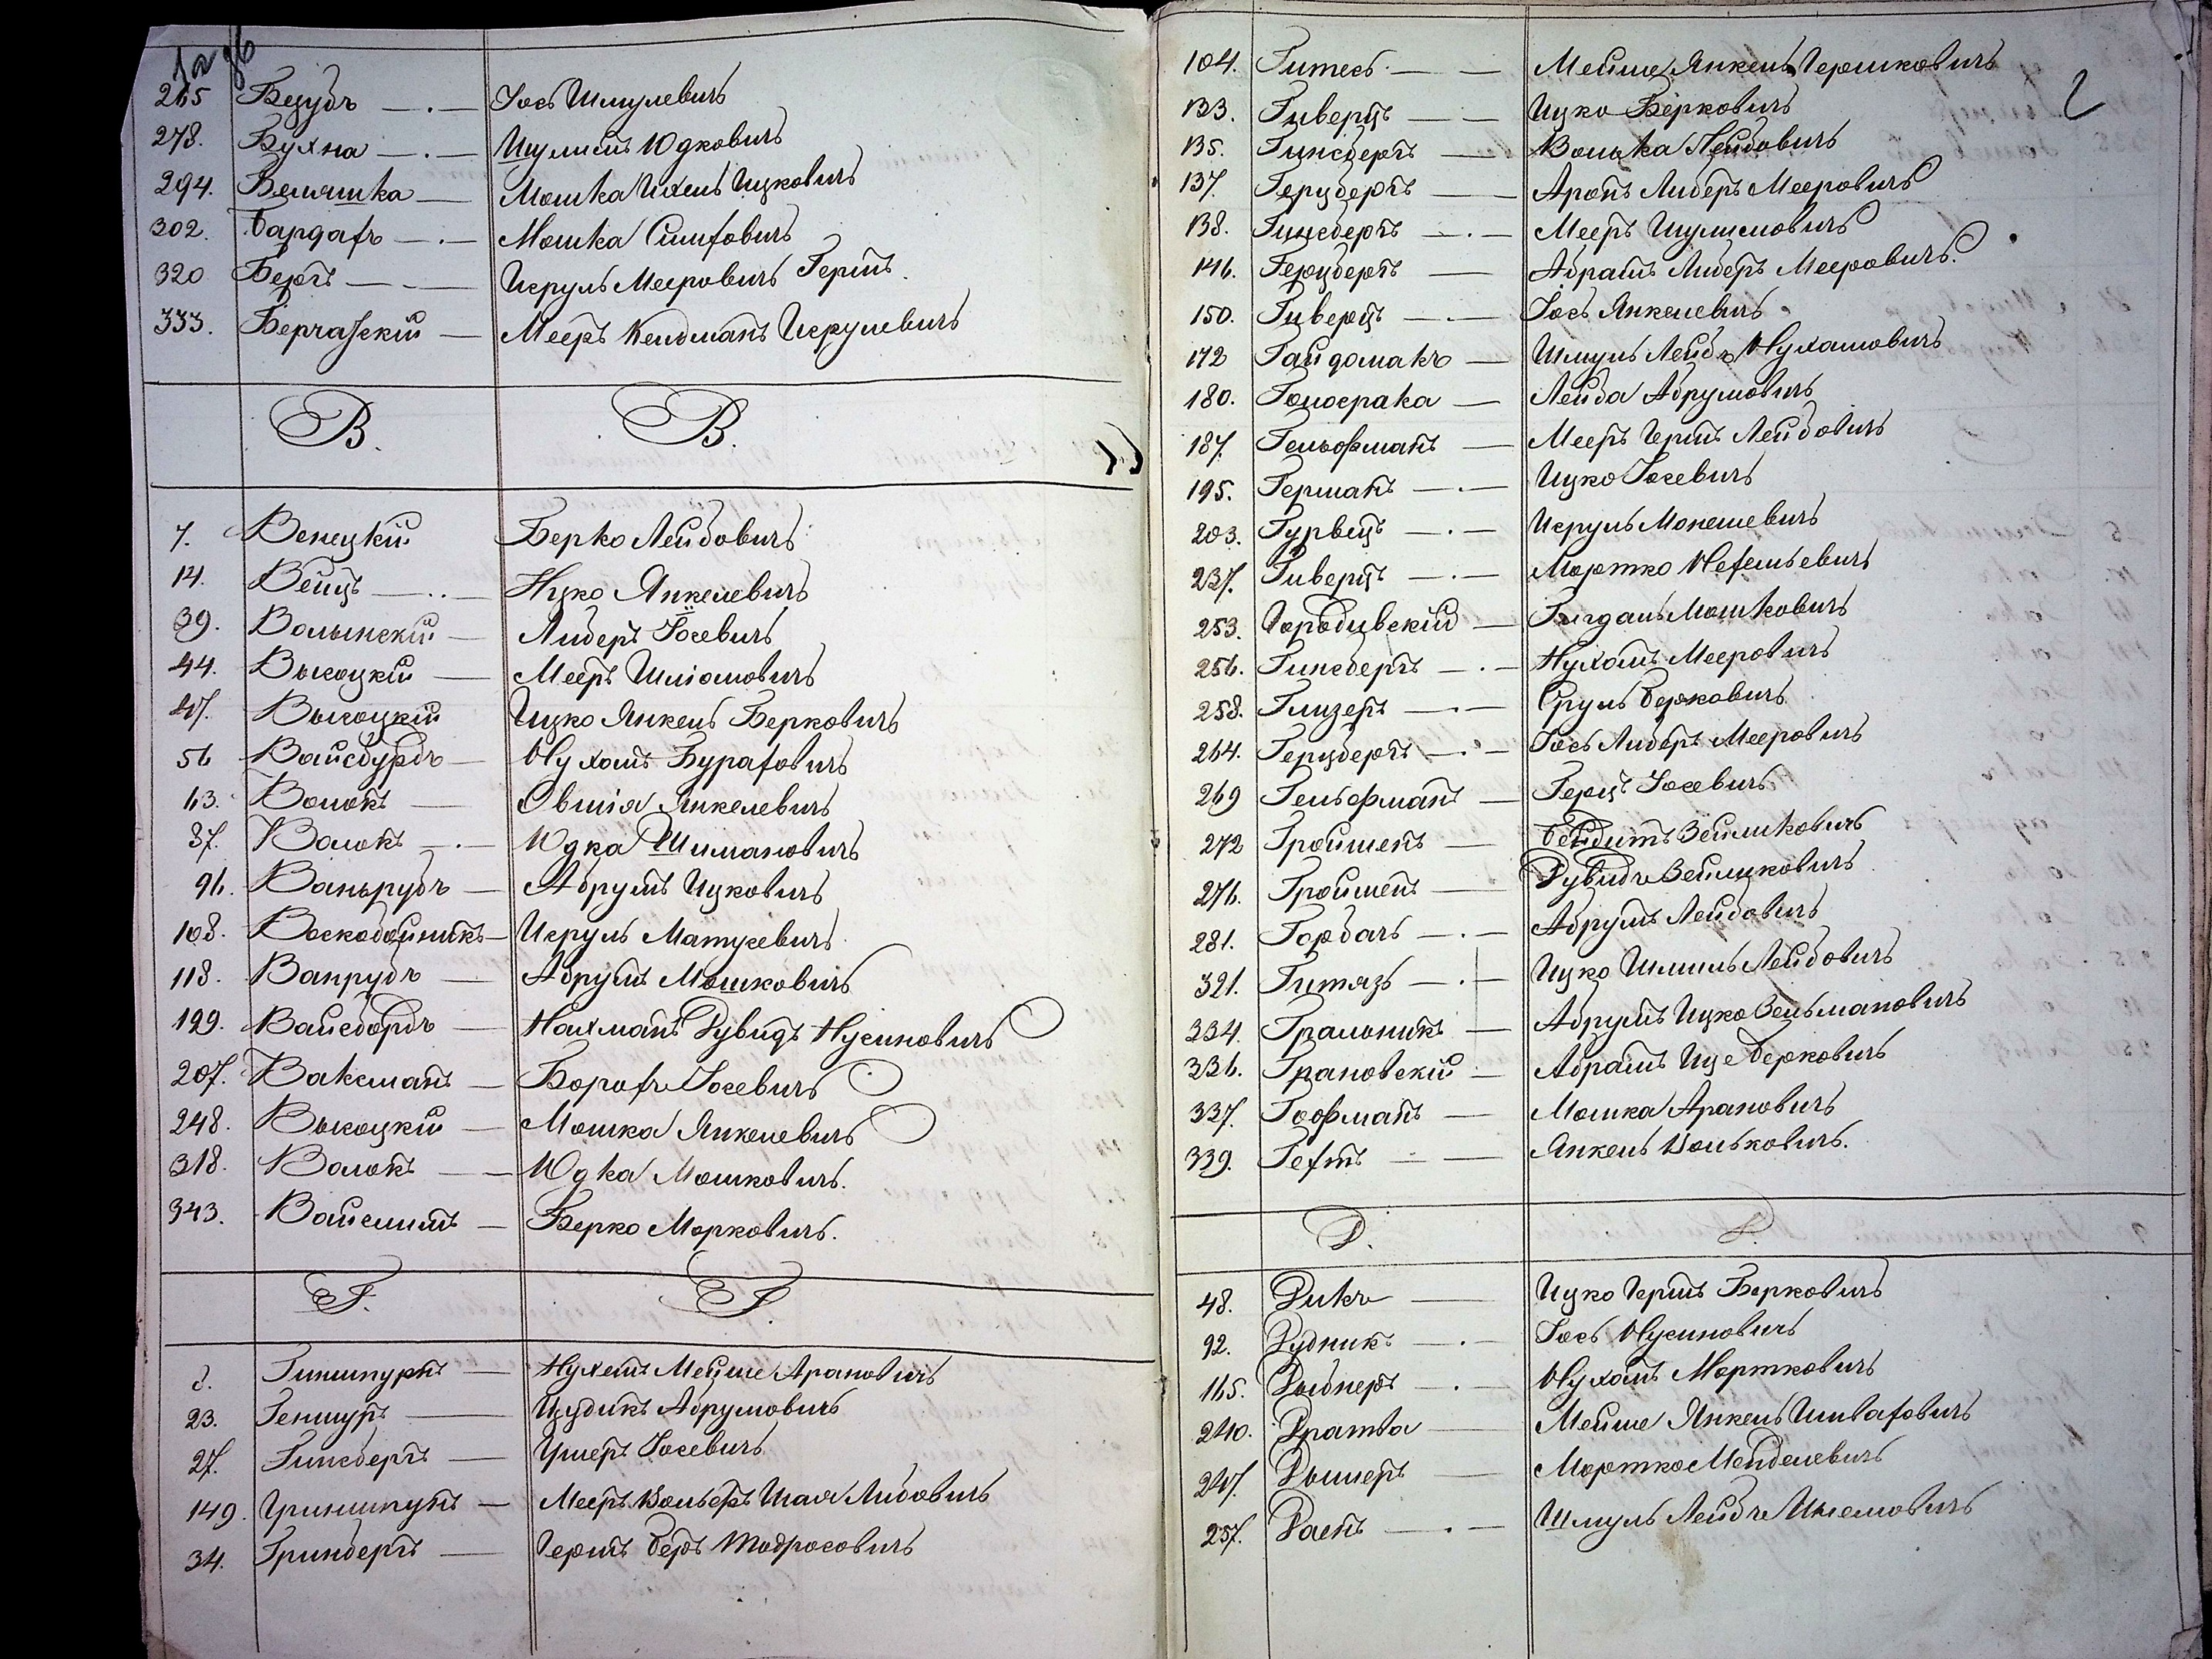 265 Бецубъ — Іось Шмулевичъ
278. Бухна — Шулимъ Юдковичъ
294. Беляшка — Мошка Ихель Ицковичъ
302. Бардахъ — Мошка Симховичъ
320 Бергъ — Исруль Мееровичъ Гершъ
333. Берчатскій — Мееръ Кельманъ Исрулевичъ
В. В.
7. Венецкій Берко Лейбовичъ
14. Вейцъ — Ицко Янкелевичъ
39. Волынскій — Либеръ Іосевичъ
44. Высоцкій — Мееръ Шліомовичъ
47. Высоцкій Ицко Янкель Берковичъ
56 Вайсбурдъ — Нухамъ Бураховичъ
63. Волокъ — Овшія Янкелевичъ
87. Волокъ — Юдка Шимановичъ
96. Ваньрубъ — Абрумъ Ицковичъ
108. Воскобойникъ — Исруль Матусевичъ
118. Ванрубъ — Абрумъ Мошковичъ
199. Вайсбордъ — Нахманъ Дувидъ Нусиновичъ
207. Ваксманъ — Борохъ Іосевичъ
248. Высоцкій — Мошка Янкелевичъ
318. Волокъ — Юдка Мошковичъ.
343. Вайслитъ — Берко Морковичъ.
Г. Г.
8. Гиншпургъ — Нухемъ Мейше Арановичъ
23. Геншуръ — Абрумовичъ
27. Гинсбергъ — Ушеръ Іосевичъ
149. Гриншпунъ — Мееръ Вольферъ Шая Либовичъ
34. Гринбергъ — Гершъ Беръ Тодросовичъ
2
104. Гитесъ — Мейше Янкель Гершковичъ
133. Гиверцъ — Ицко Берковичъ
135. Гинсбергъ — Волька Лейбовичъ
137. Герцбергъ — Аронъ Либеръ Мееровичъ
138. Гинсбергъ — Мееръ Шулимовичъ
146. Герцбергъ — Абрамъ Либеръ Мееровичъ.
150. Гиверцъ — Іось Янкелевичъ
172 Гайдомакъ — Шмуль Лейбъ Нухамовичъ
180. Голосрака — Лейба Абрумовичъ
187. Гельфманъ — Мееръ Гершъ Лейбовичъ
195. Германъ — Ицко Іосевичъ
203. Гурвицъ — Исруль Монешевичъ
237. Гиверцъ — Мортко
253. Городивскій — Мошковичъ
256. Гинсбергъ — Нухамъ Мееровичъ
258. Глизеръ — Сруль Берковичъ
264. Герцбергъ — Іось Либеръ Мееровичъ
269 Гельфманъ — Герцъ Іосевичъ
272 Гройшенъ — Зейликовичъ
276. Гройшенъ — Дувидъ Зейликовичъ
281. Горбачъ — Абрумъ Лейбовичъ
321. Гитязь — Ицко Шлиль Лейбовичъ
334. Грамникъ — Абрумъ Ицко Зельмановичъ
336. Грановскій — Абрамъ Ице Берковичъ
337. Гофманъ — Мошка Арановичъ
339. Гехтъ — Янкель Вольковичъ.
Д. Д.
48. Дикъ — Ицко Гершъ Берковичъ
92. Дудникъ — Іось Нусиновичъ
165. Дыбнеръ — Нухамъ Мортковичъ
240. Дратва — Мейше Янкель
247. Дышлеръ — Мортко Менделевичъ
257. Даенъ — Шмуль Лейбъ